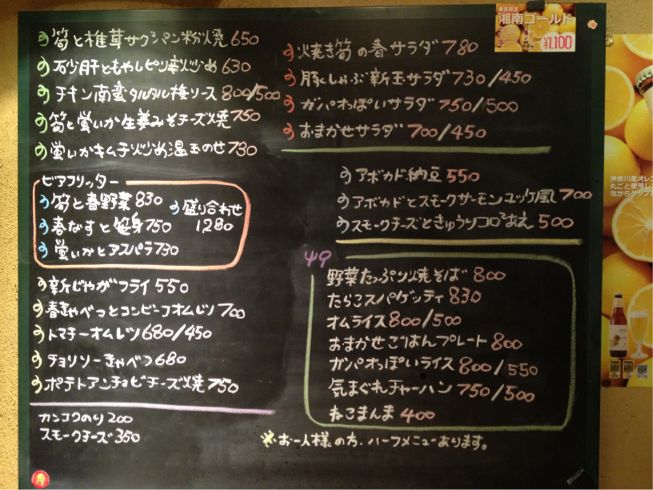 筍と椎茸サクサクパン粉焼 650
砂肝ともやしピリ辛炒め 630
チキン南蛮タルタル梅ソース 800/500
筍と蛍いか生姜みそチーズ焼 750
蛍いかキムチ炒め温玉のせ 730
ビアフリッター
筍と春野菜 830
春なすと 身 750
蛍いかとアスパラ 730
盛り合わせ
1280
新じゃがフライ 550
春きゃべつとコンビーフオムレツ 700
トマチーオムレツ 680/450
チョリソーきゃべつ 680
ポテトアンチョビチーズ焼 750
カンコクのり 200
スモークチーズ 350
焼き筍の春サラダ 780
豚しゃぶ新玉サラダ 730/450
ガパオっぽいサラダ 750/500
おまかせサラダ 700/450
アボカド納豆 550
アボカドとスモークサーモンユッケ風 700
スモークチーズときゅうりコロコロあえ 500
野菜たっぷり焼そば 800
たらこスパゲッティ 830
オムライス 800/500
おまかせごはんプレート 800
ガパオっぽいライス 800/550
気まぐれチャーハン 750/500
ねこまんま 400
※お一人様の方、ハーフメニューあります。
湘南ゴールド
¥1,100
神奈川産オレ